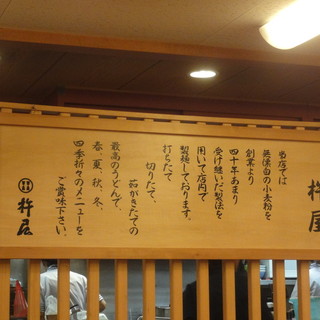 杵屋
当店では
無漂白の小麦粉を
創業より
四十年あまり
受け継いだ製法を
用いて店内で
製麺しております。
打ちたて、
切りたて、
茹がきたての
最高のうどんで、
春、夏、秋、冬、
四季折々のメニューを
ご賞味下さい。
杵屋